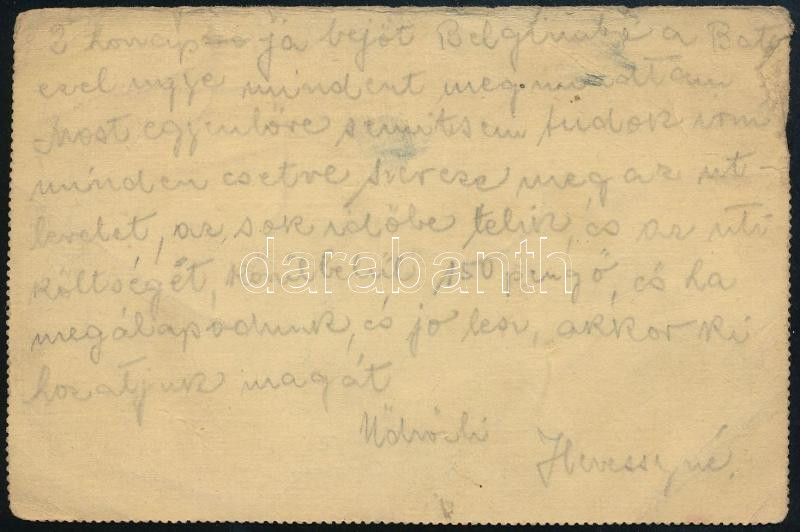 2 honap ja bejöt Belgiumbe a Bat
ezel ugye mindent megmondtam
Most egyenlöre semitsem tudok irni
minden esetre szereze meg az ut-
levelet, az sok időbe telik, és az uti
költségét, körülbelül 150 pengő, és ha
megálapodunk, és jo lesz, akkor ki
hozatjuk magát
Üdvözli
Hevessyné.
darabanth